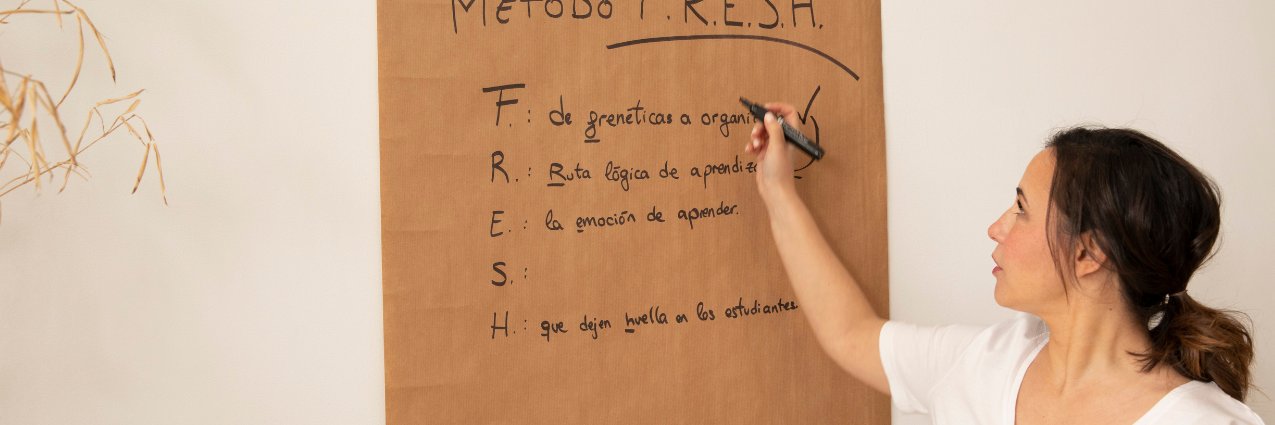 METODO F.R.E.S.H.
F.: de frenéticas a
R.: Ruta lógica de
E.: la emoción de aprender.
S.:
H.: que dejen huella en los estudiantes.